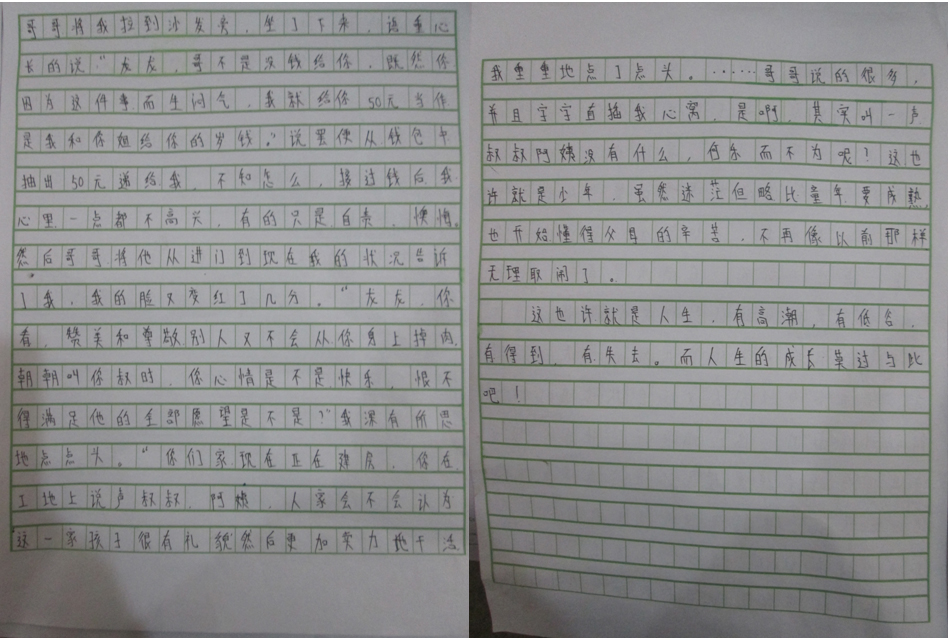 哥哥将我拉到沙发旁，坐了下来，语重心
长的说“友友，哥不是没钱给你，既然你
因为这件事而生闷气，我就给你50元当作
是我和你姐给你的岁钱。”说罢便从钱包中
抽出50元递给我，不知怎么，接过钱后我
心里一点都不高兴，有的只是自责，懊悔。
然后哥哥将他从进门到现在我的状况告诉
了我，我的脸又变红了几分。“友友，你
看，赞美和尊敬别人又不会从你身上掉肉，
朝朝叫你叔时，你心情是不是快乐，恨不
得满足他的全部愿望是不是？”我深有所思
地点点头。“你们家现在正在建房，你在
工地上说声叔叔，阿姨，人家会不会认为
这一家孩子很有礼貌然后更加卖力地干活。
我重重地点了点头。……哥哥说的很多，
并且字字直插我心窝，是啊，其实叫一声
叔叔阿姨没有什么，何乐而不为呢？这也
许就是少年，虽然迷茫但略比童年要成熟，
也开始懂得父母的辛苦，不再像以前那样
无理取闹了。
这也许就是人生，有高潮，有低谷，
有得到，有失去。而人生的成长莫过与此
吧！